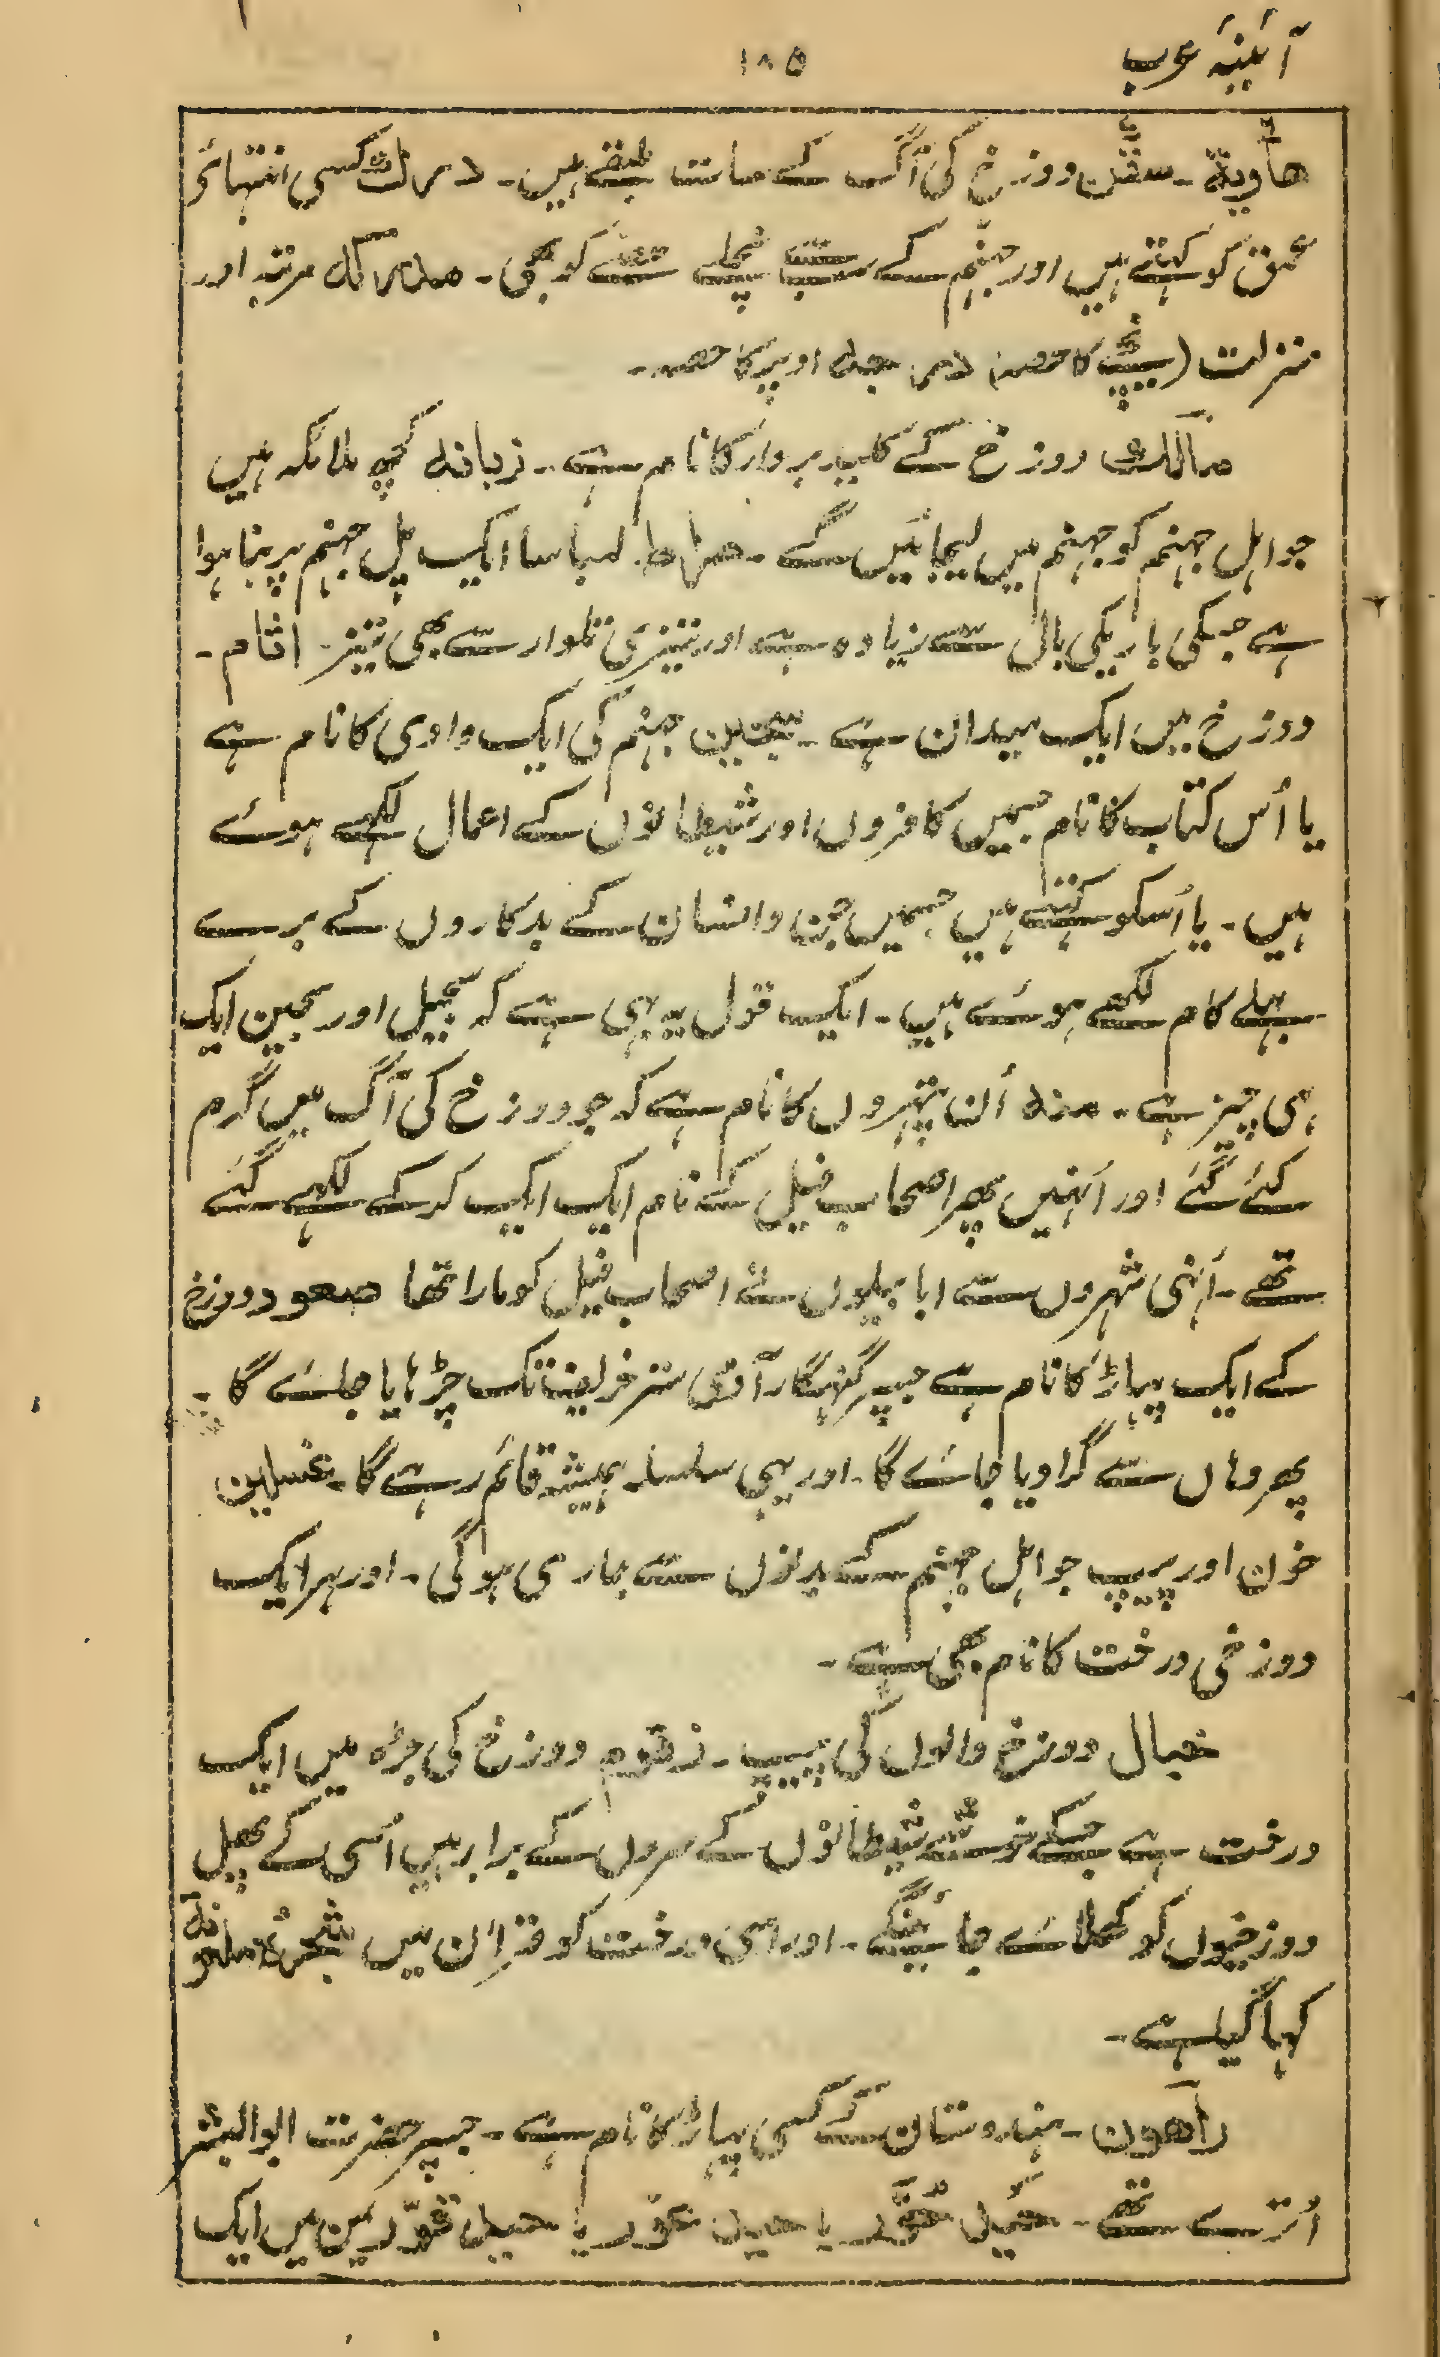 آئینۂ عرب
۱۸۵
ھاویۃ ۔ سقر دوزخ کی آگ کے سات طبقے ہیں ۔ درک کسی انتہائی
عمق کو کہتے ہیں اور جہنم کے سب سے نچلے حصّے کو بھی ۔ مرتبہ اور
منزلت (نیچے کا حصہ) اوپر کا حصہ ۔
مالک دوزخ کے کلید بردار کا نام ہے ۔ زبانیہ کچھ ملائکہ ہیں
جو اہل جہنم کو جہنم میں لیجائیں گے ۔ صراط ۔ لمبا سا ایک پل جہنم پر بنا ہوا
ہے جسکی باریکی بال سے زیادہ ہے اور تیزی تلوار سے بھی تیز ۔ اثام ۔
دوزخ میں ایک میدان ہے ۔ سجین جہنم کی ایک وادی کا نام ہے
یا اُس کتاب کا نام جسمیں کافروں اور شیطانوں کے اعمال لکھے ہوئے
ہیں ۔ یا اُسکو کہتے ہیں جسمیں جن و انسان کے بدکاروں کے برے
بہلے کام لکھے ہوئے ہیں ۔ ایک قول یہ بہی ہے کہ سجیل اور سجین ایک
ہی چیز ہے ۔ اُن پتہروں کا نام ہے کہ جو دوزخ کی آگ میں گرم
کئے گئے اور اُنہیں پھر اصحاب فیل کے نام ایک ایک کر کے لکھے گئے
تھے ۔ اُنہی سے ابابیلوں نے اصحاب فیل کو مارا تھا صعود دوزخ
کے ایک پہاڑ کا نام ہے جسپر گنہگار آدمی ستر خریف تک چڑہایا جائے گا ۔
پھر وہاں سے گرا دیا جائے گا ۔ اور یہی سلسلہ ہمیشہ قائم رہے گا ۔ غسلین
خون اور پیپ جو اہل جہنم کے بدنوں سے جاری ہو گی ۔ اور ہر ایک
دوزخی درخت کا نام بھی ہے ۔
خبال دوزخ والوں کی پیپ ۔ زقوم دوزخ کی جڑہ میں ایک
درخت ہے جسکے خوشے شیطانوں کے سروں کے برابر ہیں اُسی کے پھل
دوزخیوں کو کھلائے جائینگے ۔ اور اسی درخت کو قرآن میں شجرۃ ملعونۃ
کہا گیا ہے ۔
راھون ۔ ہندوستان کے کسی پہاڑ کا نام ہے ۔ جسپر حضرت ابوالبشر
اُترے تھے ۔ یا یا یمن میں ایک